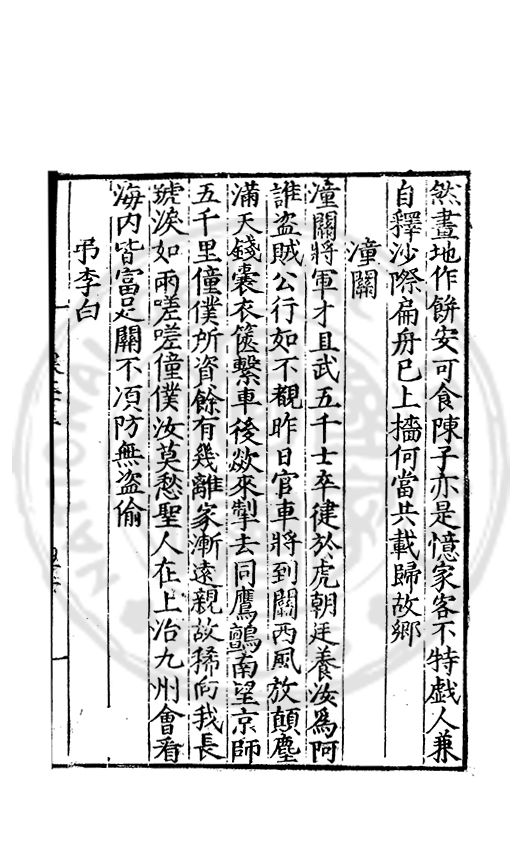 然畫地作餅安可食陳子亦是憶家客不特戲人兼
自釋沙際扁舟已上檣何當共載歸故鄉
潼關
潼關將軍才且武五千士卒健於虎朝廷養汝爲阿
誰盗賊公行如不覩昨日官車將到關西風放顛塵
滿天錢囊衣篋繫車後欻來掣去同鷹鸇南望京師
五千里僮僕所資餘有幾離家漸遠親故稀向我長
號淚如雨嗟嗟僮僕汝莫愁聖人在上治九州會看
海内皆富足關不湏防無盗偷
弔李白